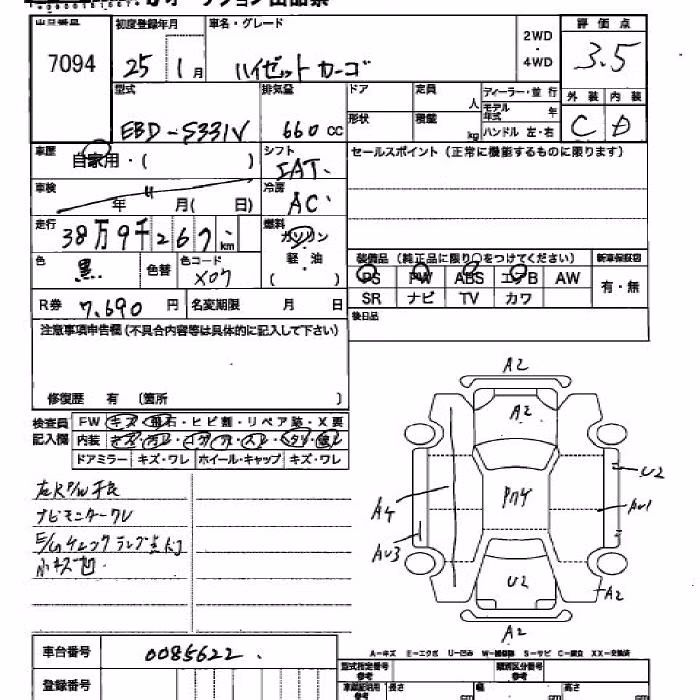 出品番号 初度登録年月 車名・グレード 2WD・4WD 評価点
7094 25 1月 ハイゼットカーゴ 3.5
型式 排気量 ドア 定員 人 ディーラー・並行 外装 内装
モデル年式 年
EBD-S331V 660cc 形状 積量 kg ハンドル 左・右 C D
車歴 自家用・( ) シフト セールスポイント(正常に機能するものに限ります)
車検 年 月( 日) 冷房 AC
走行 38万9千267km 燃料 ガソリン
軽・油
( )
色 黒 色替 色コード X07
装備品(純正品に限り○をつけてください) 新車保証図
PS PW ABS エアB AW 有・無
SR ナビ TV カワ
R券 7,690円 名変期限 月 日
後日品
注意事項申告欄(不具合内容等は具体的に記入して下さい)
修復歴 有 (箇所 )
検査員 FW キズ・飛石・ヒビ割・リペア跡・X要
記入欄 内装
ドアミラー キズ・ワレ ホイール・キャップ キズ・ワレ
ナビモニターワレ
小キズ凹
A2
A2
U2
A4
AU1
AU3
U2
A2
A2
A-キズ E-エクボ U-凹み S-サビ C-腐食 XX-交換済
車台番号 0085622
登録番号
型式指定番号 類別区分番号
長さ cm 幅 cm 高さ cm